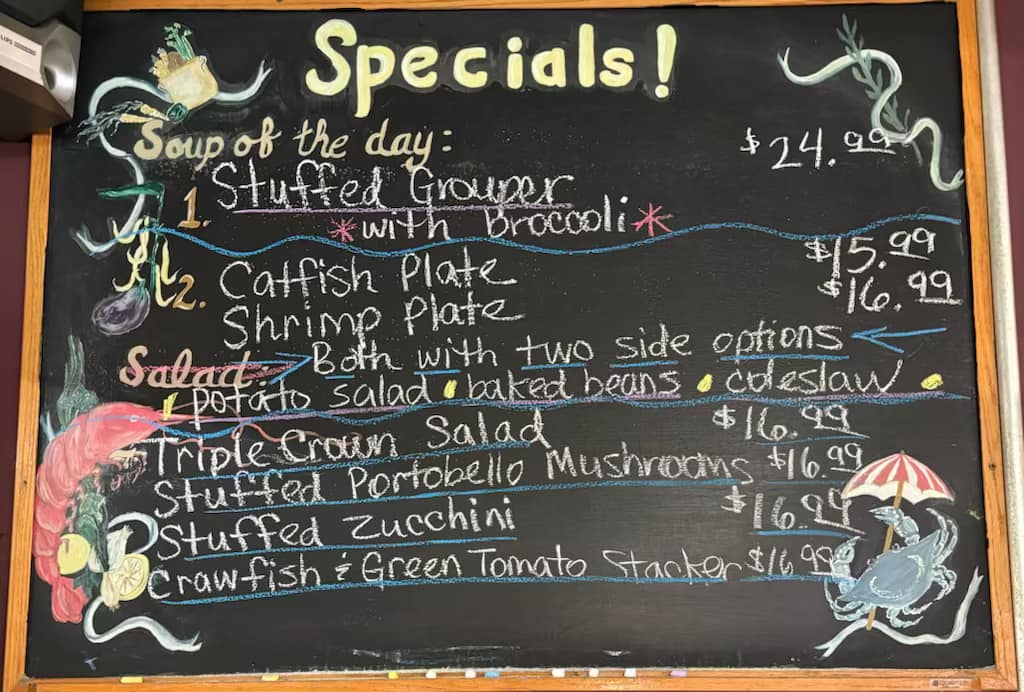 Specials!
Soup of the day:
$24.99
1. Stuffed Grouper
*with Broccoli*
2. Catfish Plate $15.99
Shrimp Plate $16.99
Both with two side options
Salad:
potato salad baked beans coleslaw
Triple Crown Salad $16.99
Stuffed Portobello Mushrooms $16.99
Stuffed Zucchini $16.99
Crawfish & Green Tomato Stacker $16.99